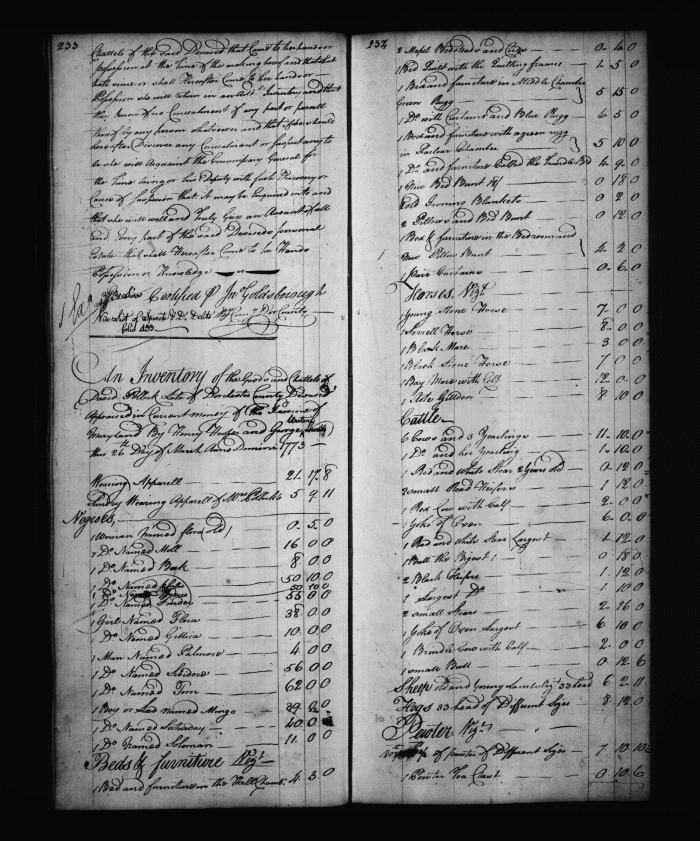 233
Chattels of the said Deceased that Come to her hand or
Possession at the time of the making hereof and that what
hath since or shall Hereafter Come to her hand or
Possession she will return in an Addl. Inventory and that
they know of no Concealment of any part or parcell
by any person whatsoever and that if she should
hereafter Discover any Concealment or Suspect any to
be she will Acquaint the Commissary General for
the time being or his Deputy with such Discovery or
Cause of Suspicion that it may be Enquired into and
that she will well and truly Give an Account of all
and Every part of the said Deceaseds personal
Estate that shall Hereafter Come to her Hands
Possession or Knowledge
Certified P Jno. Goldsborough
Dor County
folio 433
An Inventory of the Goods and Chattels of
David Pollock Late of Dorchester County Deceased
Appraised in Current money of the Province of
Maryland By Henry Hooper and George
this 26th Day of March Anno Domini 1773
Wearing Apparell 21. 17. 8
Sundry Wearing Apparell of Mrs. Pollocks 5 9. 11
Negroes,
1 Woman named flora (old) 0. 5. 0
1 Do. Named Moll 16 0 0
1 Do. Named Beck 8. 0 0
1 Do. Named 50 10. 0
1 Do. Named 55 0 0
1 Girl Named Flora 38. 0 0
1 Do. Named 10. 0 0
1 Man Named Palmore 4. 0 0
1 Do. Named 56 0 0
1 Do. Named Tom 62 0 0
1 Boy or Lad named Mingo
1 Do. Named Saturday 40 0 0
1 Do. Named Soloman 11. 0 0
Beds & furniture Vizt.
1 Bed and furniture in the Hall Chamb. 4 3. 0
234
2 Mapel Bedsteads and Cords 0. 4. 0
1 Bed Quilt with the Quilting frames 1. 5 0
1 Bed and furniture in Middle Chamber
Green Rugg 5 15 0
1 Do. with Curtains and Blue Rugg 6. 5 0
1 Bed and furniture with a green rugg
in Parlour Chamber 5 10 0
1 Do. and furniture Called the Trundle Bed 4. 9. 0
1 New Bed Bunt 0 18. 0
2 old Blankets 0 2 0
2 Pillows and Bed Bunt 0 12. 0
1 Bed & furniture in the Bedroom and
New Pillow Bunt 4. 2. 0
1 pair Curtains 0. 6. 0
Horses, Vizt.
1 Young Stone Horse 7. 0 0
1 Sorrell Horse 8. 0 0
1 Black Mare 3 0 0
1 Black Stone Horse 7 0 0
1 Bay Mare with Colt 12. 0 0
1 Old Gelding 8 10 0
Cattle
6 Cows and 3 Yearlings 11. 10. 0
1 Do. and her Yearling 1. 10. 0
1 Red and White Stear 2 Years old 0. 12. 0
2 small Read Heifers 1 12. 0
1 Red Cow with Calf 2. 0 0
1 Yoke of Oxen 6. 0. 0
1 Red and White Stear Largest 1. 12. 0
1 Bull the Bigest 0 18. 0
2 Black 1 12. 0
1 Largest Do. 1 10. 0
2 small Stears 2. 16 0
1 Yoke of Oxen Largest 6 10 0
1 Brindle Cow with Calf 2. 0 0
1 small Bull 0. 12. 6
Sheep old and Young 33 head 6 2. 11
Hogs 33 head of Different Sizes 8. 12. 0
Pewter Vizt.
of pewter of Different Sizes 7. 10. 10
1 Pewter 0. 10. 6